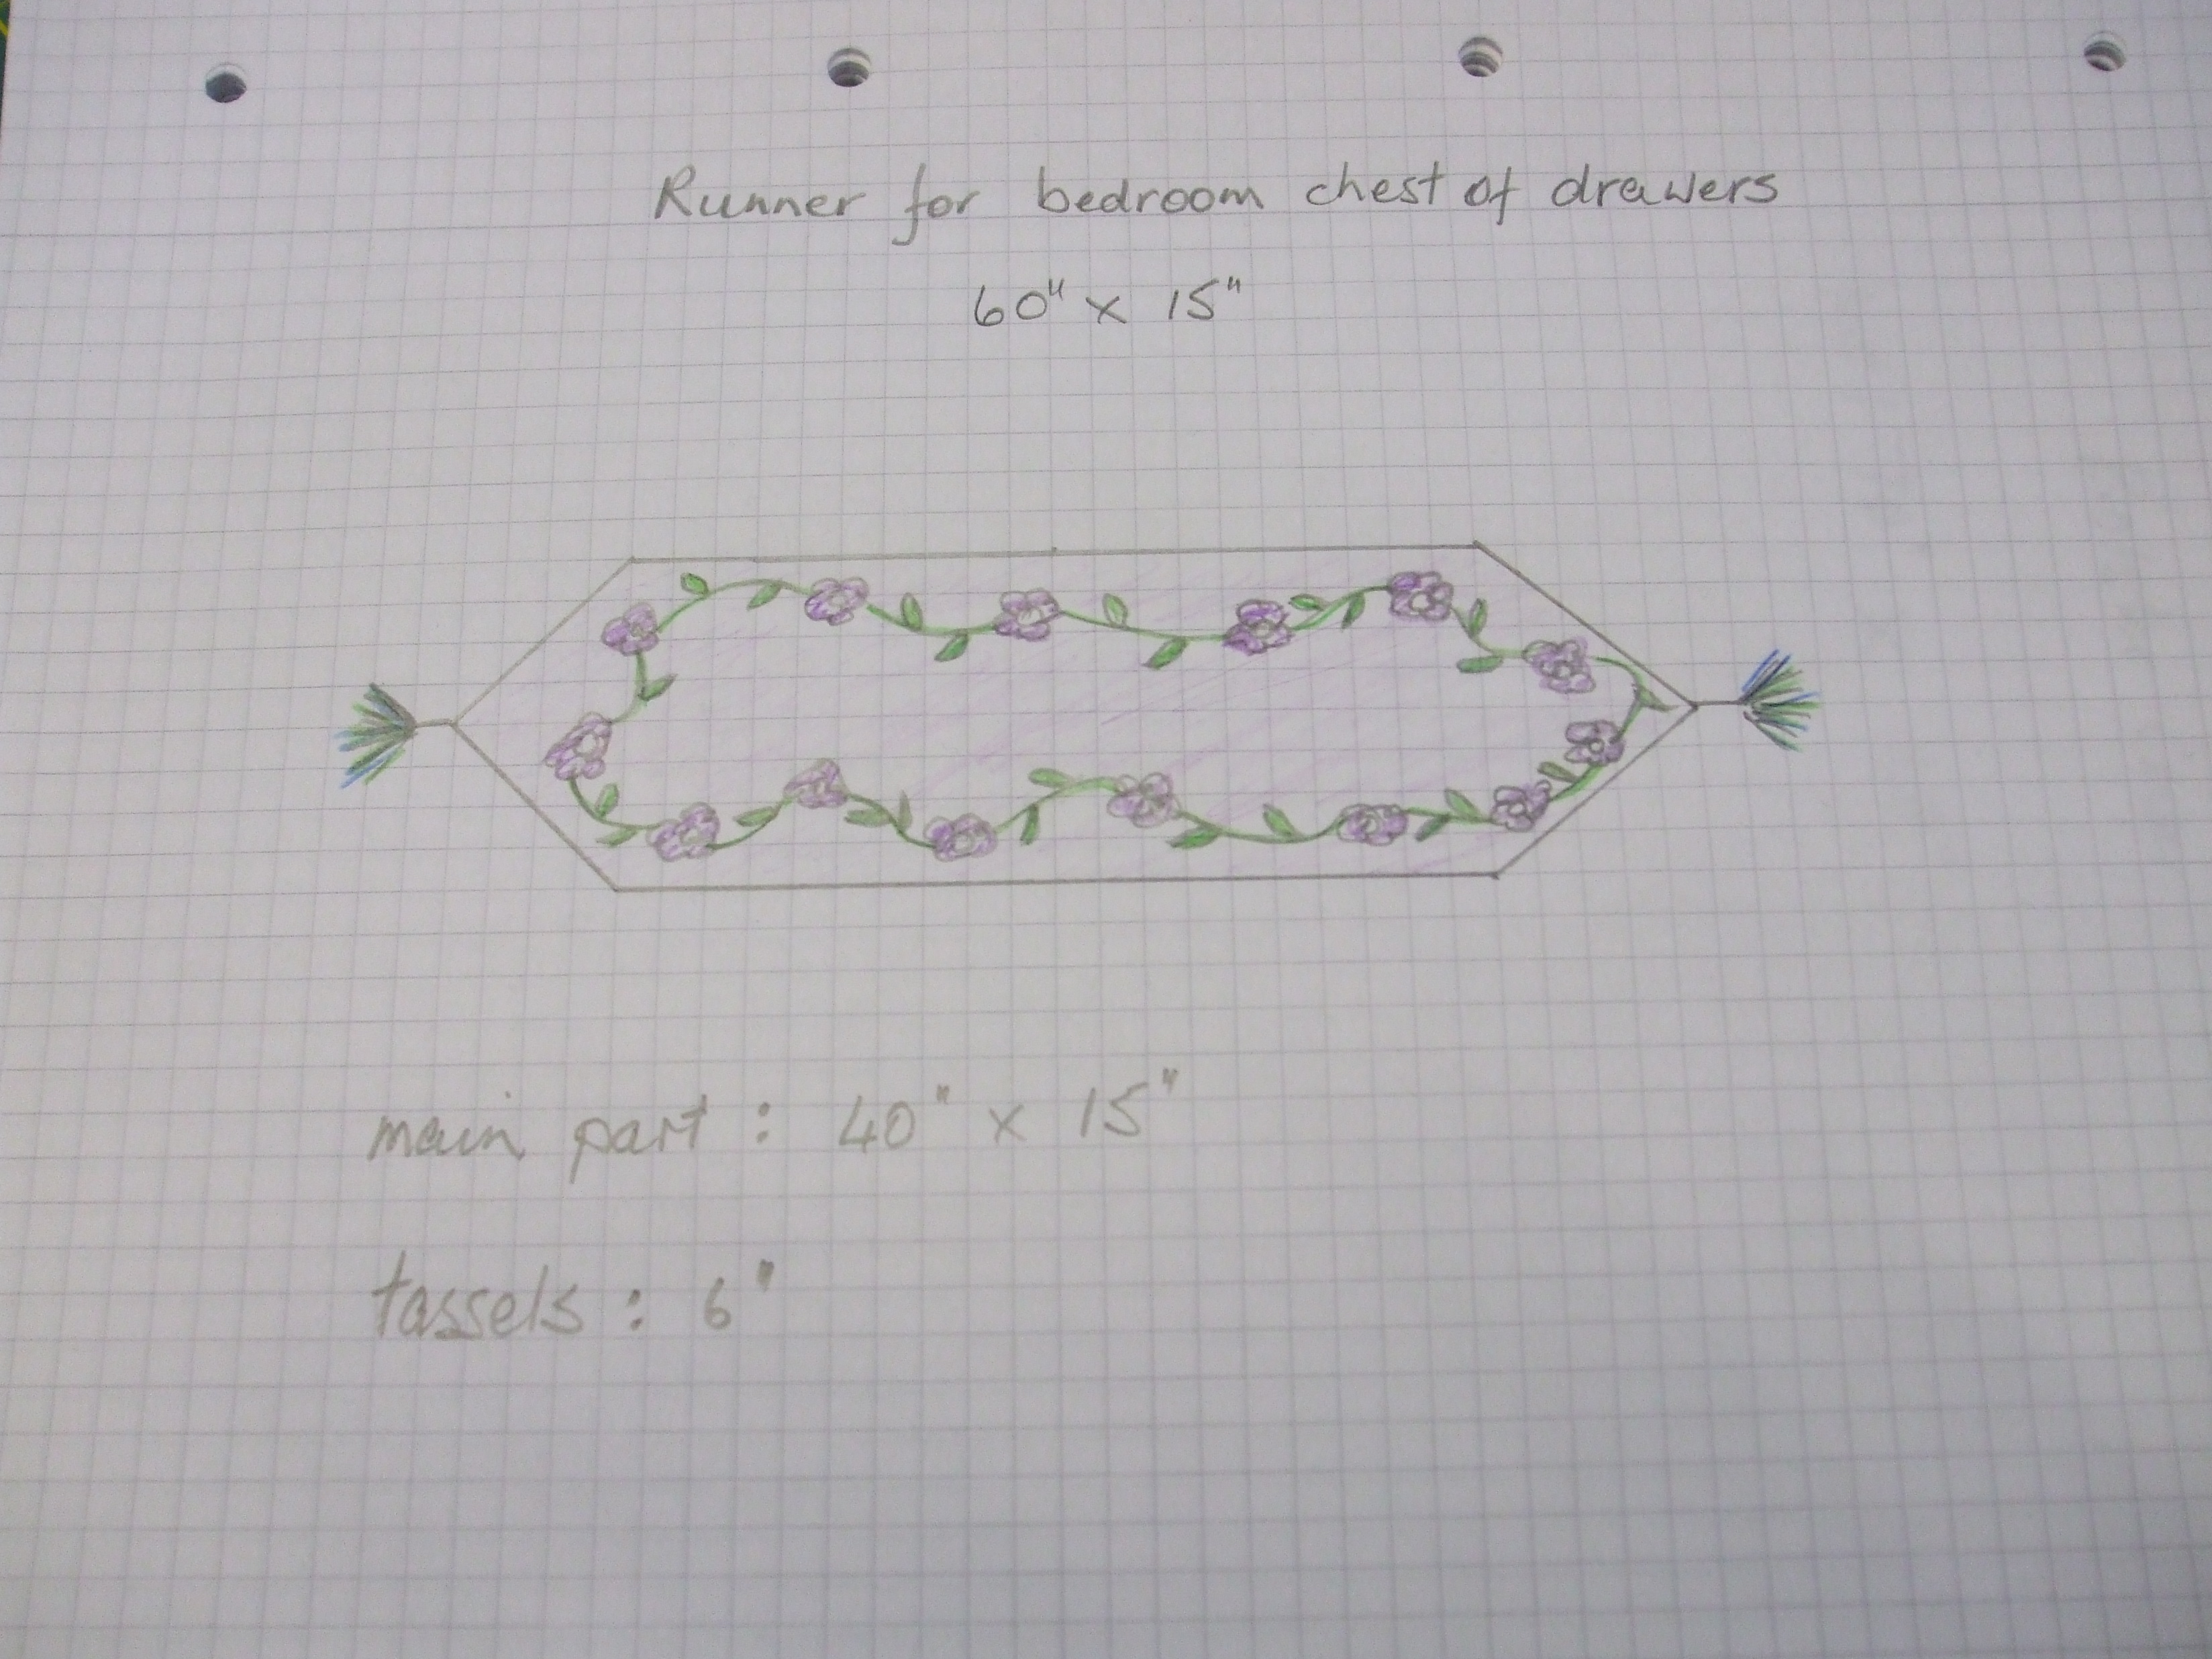 Runner for bedroom chest of drawers
60" x 15"
main part : 40" x 15"
tassels : 6"